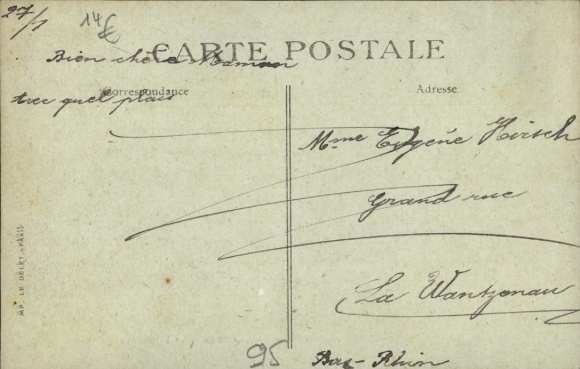 27/1
14€
CARTE POSTALE
Bien chère Maman
Correspondance
Adresse
avec quel plaisir
Mme Eugène Hirsch
Grand rue
La Wantzenau
Bas-Rhin
95
IMP. LE DELEY - PARIS